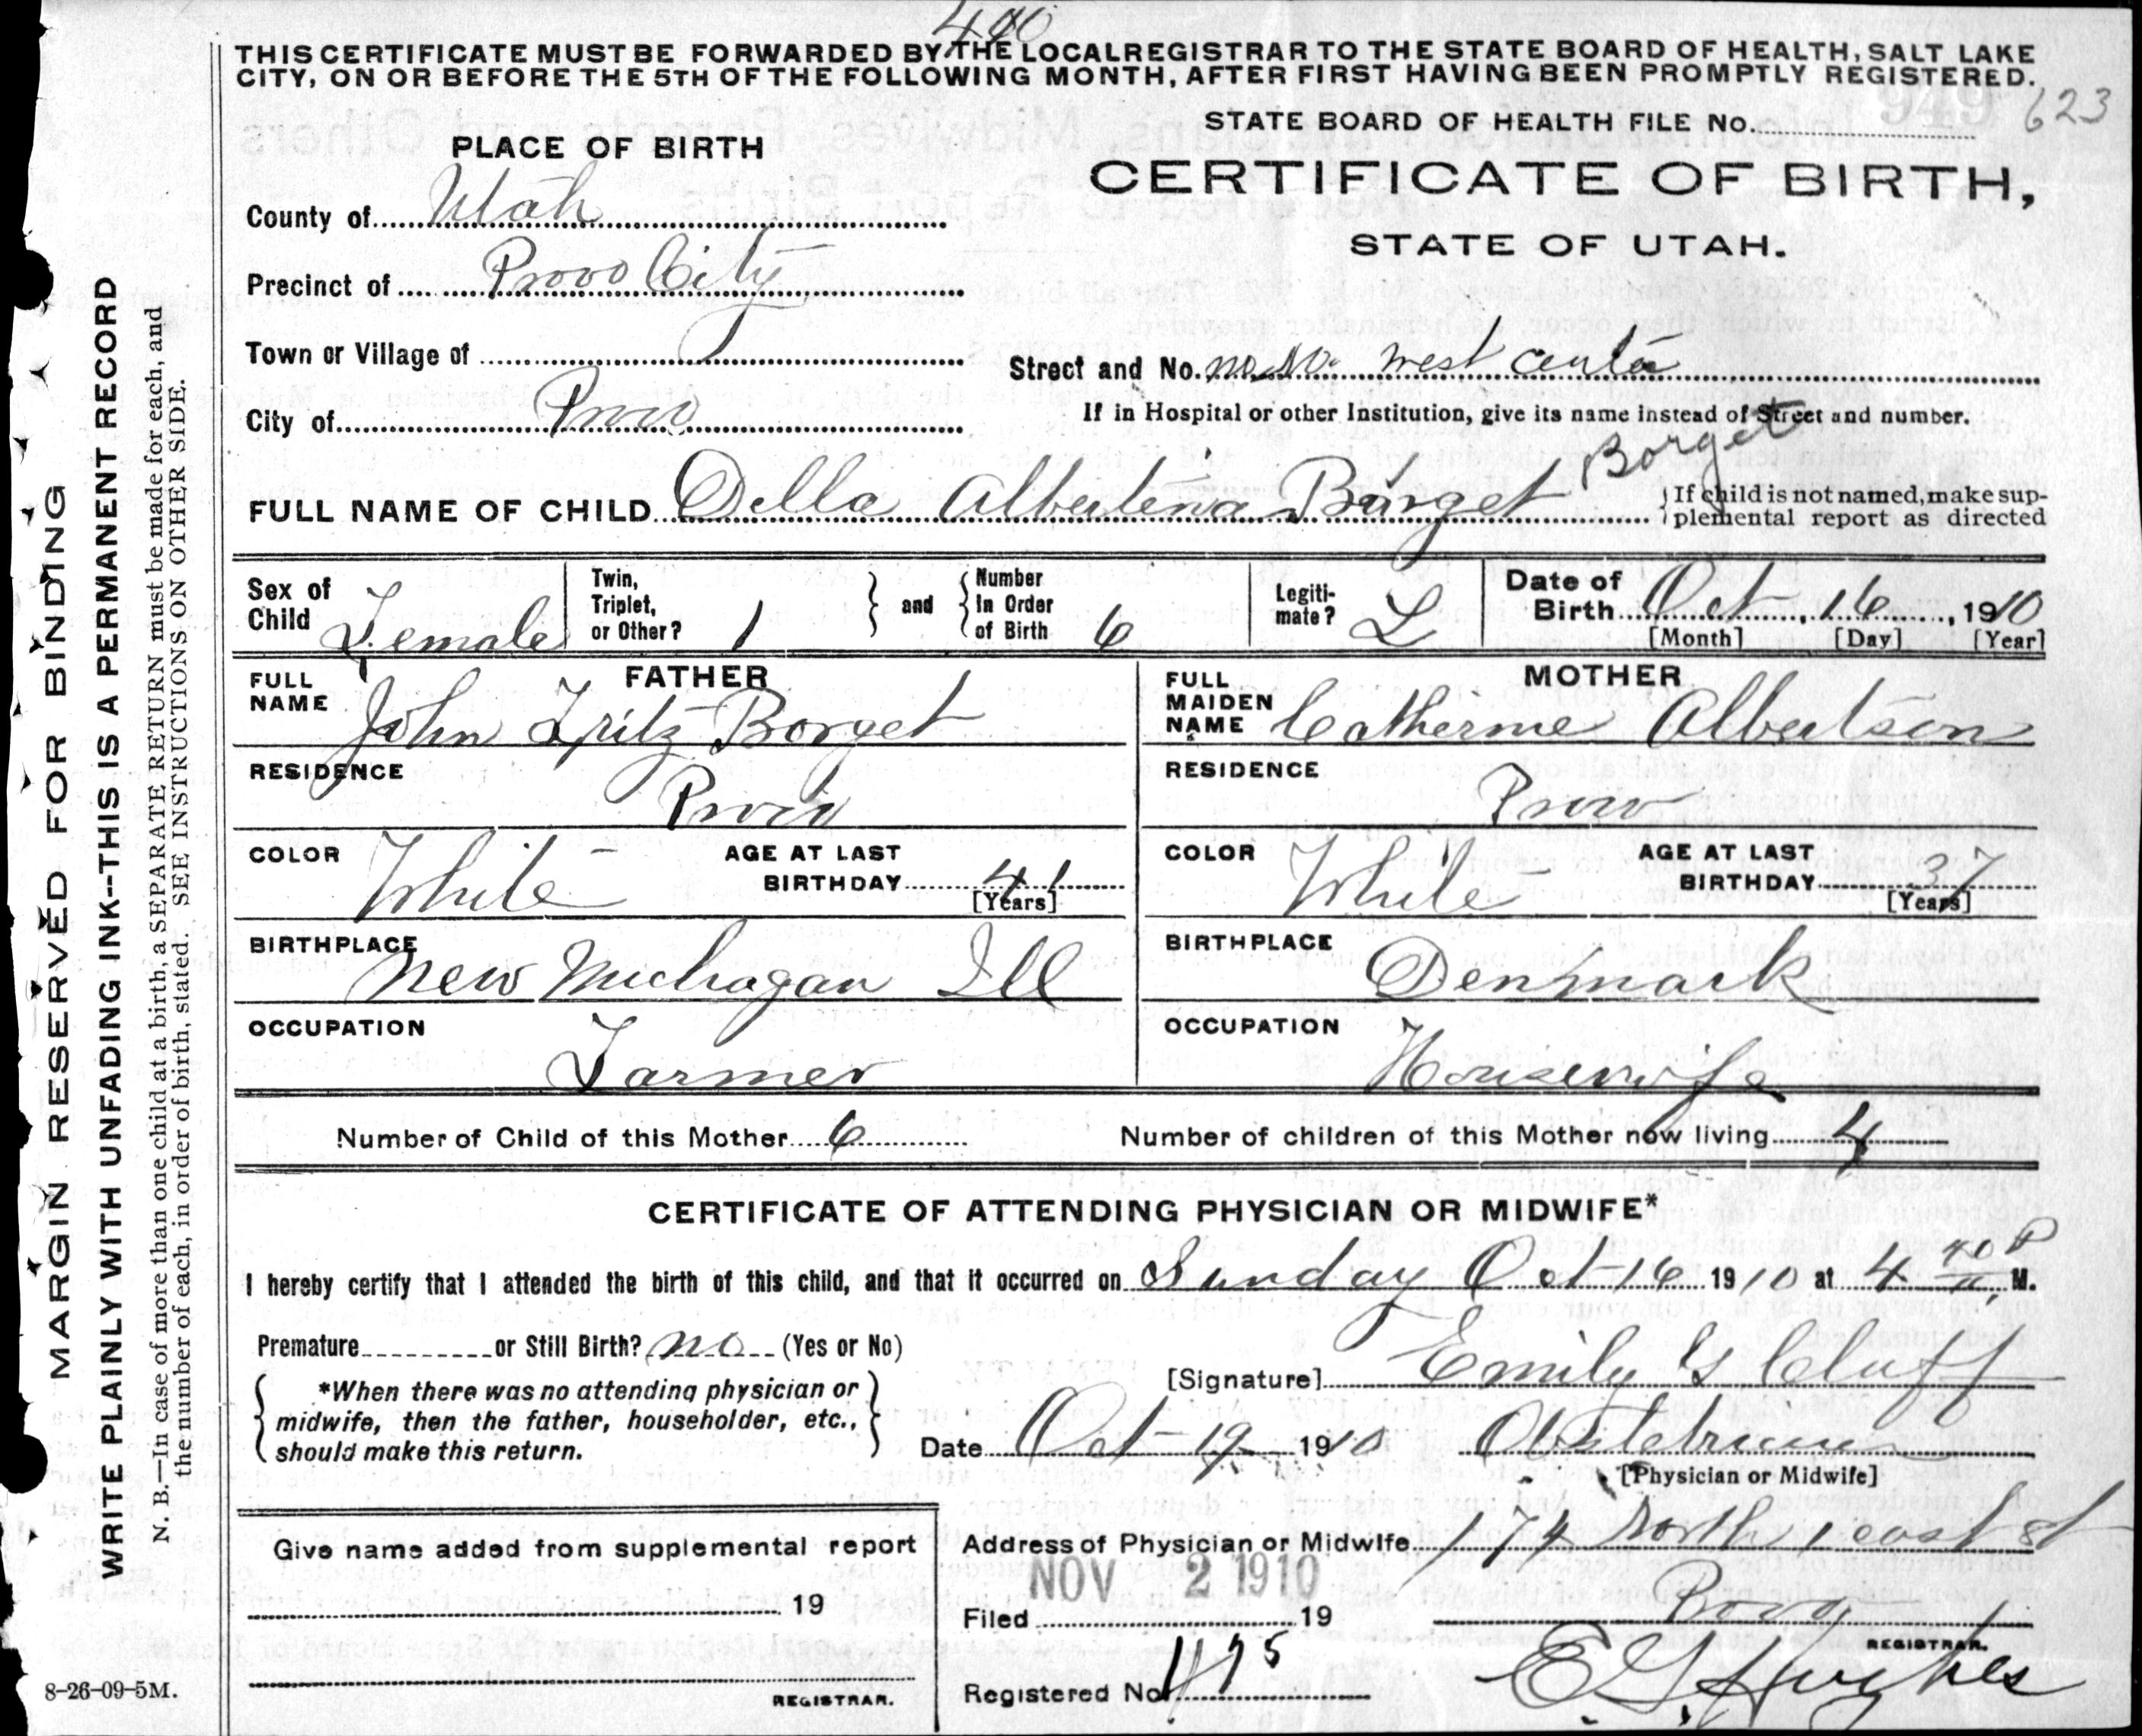 490
THIS CERTIFICATE MUST BE FORWARDED BY THE LOCAL REGISTRAR TO THE STATE BOARD OF HEALTH, SALT LAKE
CITY, ON OR BEFORE THE 5TH OF THE FOLLOWING MONTH, AFTER FIRST HAVING BEEN PROMPTLY REGISTERED.
STATE BOARD OF HEALTH FILE No. 949 623
PLACE OF BIRTH
CERTIFICATE OF BIRTH,
STATE OF UTAH.
County of Utah
Precinct of Provo City
Town or Village of
Street and No. no No. West Center
City of Provo
If in Hospital or other Institution, give its name instead of Street and number.
Borget
FULL NAME OF CHILD Della Albertena Borget
If child is not named, make sup-
plemental report as directed
Sex of Child Female
Twin, Triplet, or Other? 1
and
Number In Order of Birth 6
Legiti-mate? L
Date of Birth Oct, 16, 1910
[Month] [Day] [Year]
FATHER
FULL NAME John Fritz Borget
RESIDENCE Provo
COLOR White AGE AT LAST BIRTHDAY 41
[Years]
BIRTHPLACE New Michagan Ill
OCCUPATION Farmer
MOTHER
FULL MAIDEN NAME Catherine Albertson
RESIDENCE Provo
COLOR White AGE AT LAST BIRTHDAY 37
[Years]
BIRTHPLACE Denmark
OCCUPATION Housewife
Number of Child of this Mother 6 Number of children of this Mother now living 4
CERTIFICATE OF ATTENDING PHYSICIAN OR MIDWIFE*
I hereby certify that I attended the birth of this child, and that it occurred on Sunday Oct 16 1910 at 4 40 P M.
Premature or Still Birth? no (Yes or No)
*When there was no attending physician or
midwife, then the father, householder, etc.,
should make this return.
[Signature] Emily G Cluff
Date Oct 19 1910 Obstetrician
[Physician or Midwife]
Give name added from supplemental report
19
REGISTRAR.
Address of Physician or Midwife 174 North 1 east st
Provo
NOV 2 1910
Filed 19
REGISTRAR.
Registered No. 475
E G Hughes
8-26-09-5M.
MARGIN RESERVED FOR BINDING
WRITE PLAINLY WITH UNFADING INK--THIS IS A PERMANENT RECORD
N. B.—In case of more than one child at a birth, a SEPARATE RETURN must be made for each, and
the number of each, in order of birth, stated. SEE INSTRUCTIONS ON OTHER SIDE.